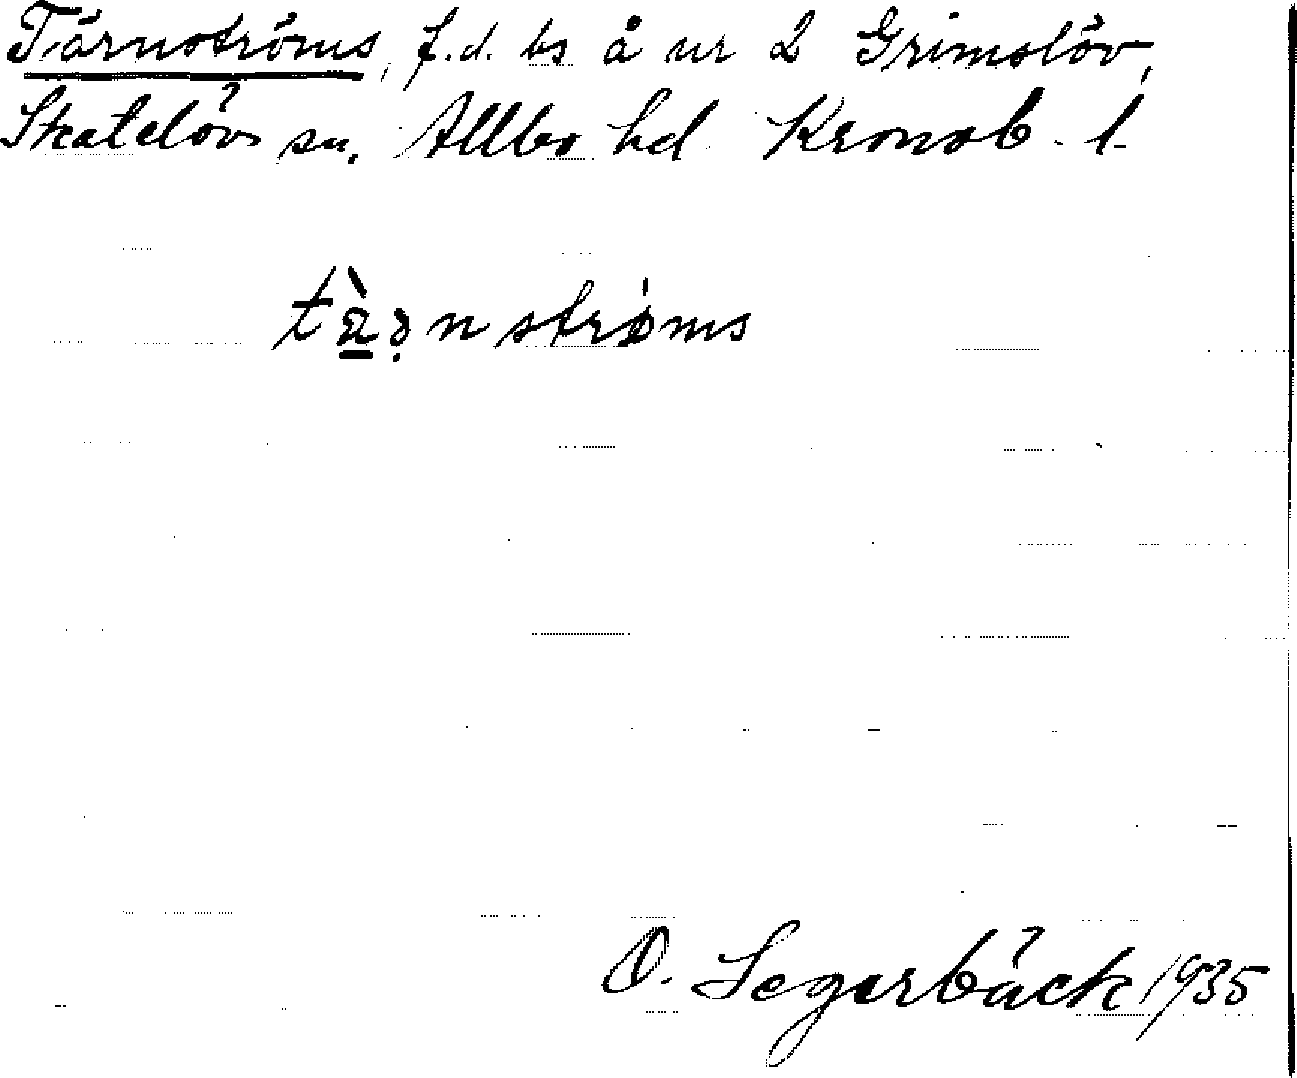 Tärnströms, f.d. bs å ur 2 Grimslöv,
Skatelövs sn. Allbo hd Kronob. l.
tströms
O. Segerbäck 1935